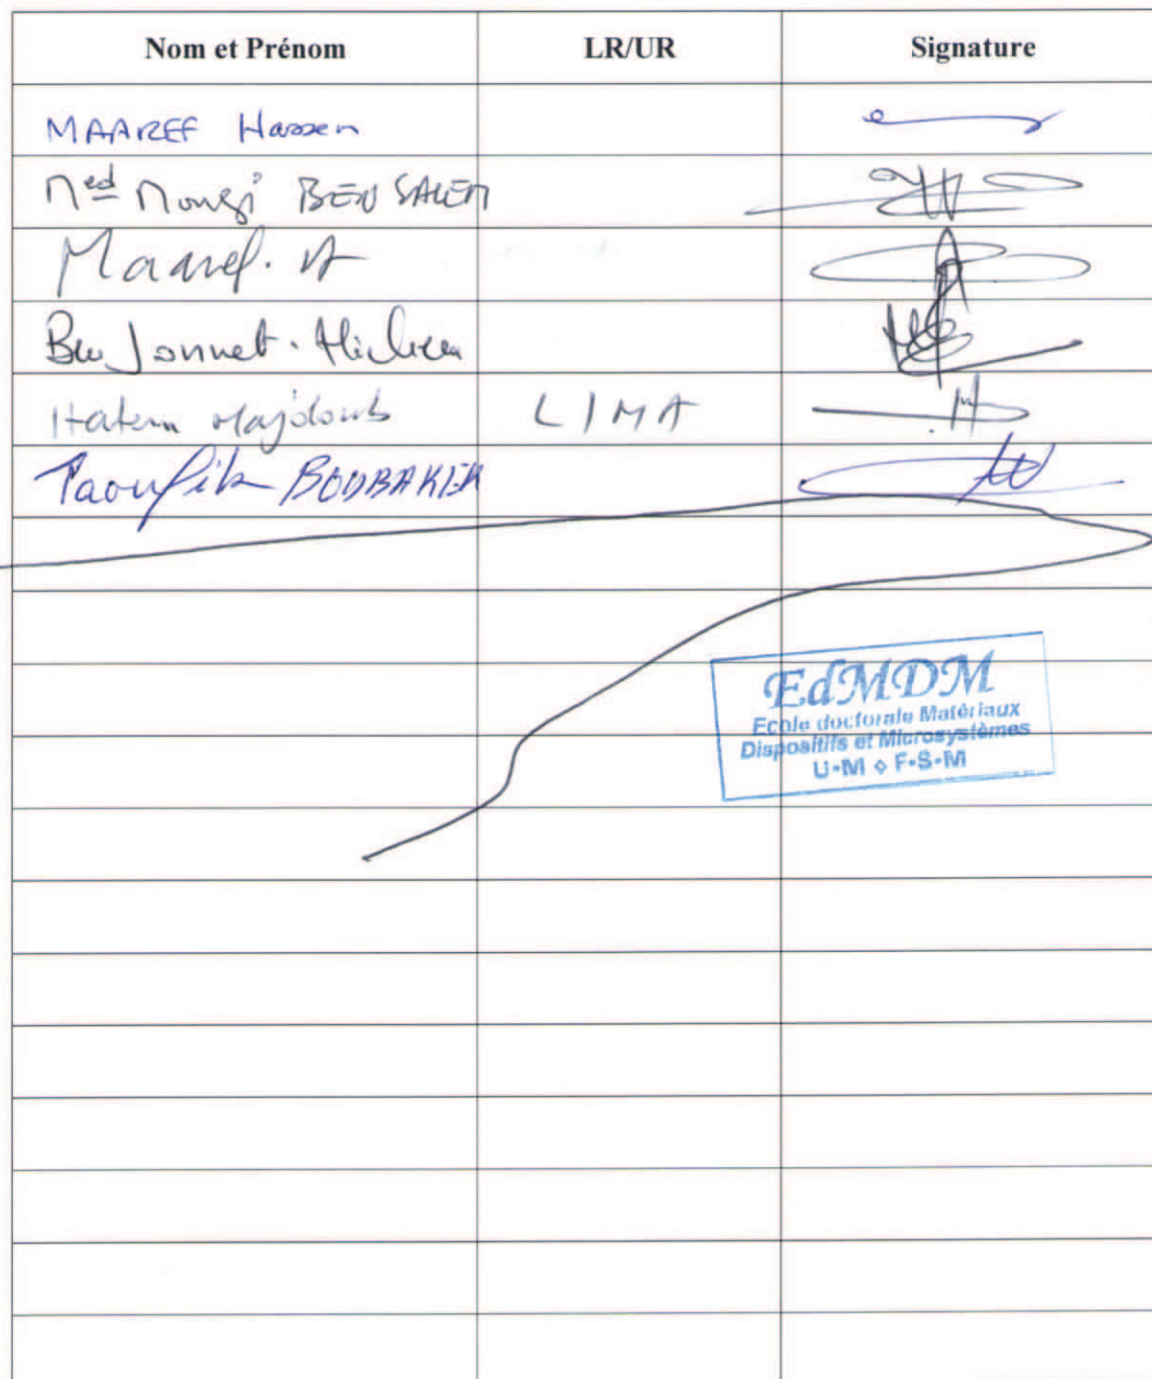 Nom et Prénom LR/UR Signature
MAAREF Hassen
Med Mongi BEN SALEM
Maaref. A
Ben Jannet
Hatem Majdoub LIMA
Taoufik BOUBAKER
EdMDM
Ecole doctorale Matériaux
Dispositifs et Microsystèmes
U•M ◇ F•S•M